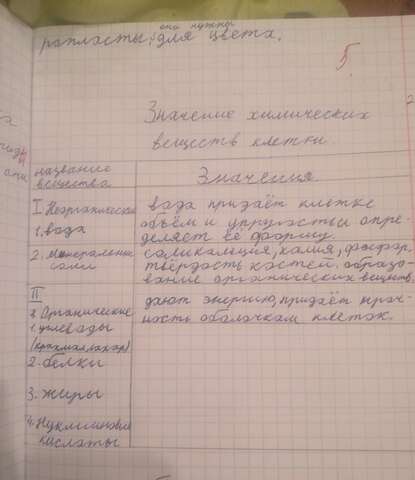 они нужны
ропласты; для цвета.
5.
Значение химических
веществ клетки.
название
вещества
Значения
I Неорганические
1. вода
вода придаёт клетке
объём и упругость и опре-
деляет её форму.
2. Минеральные
соли
соли кальция, калия, фосфор,
твёрдость костей. образо-
вание органических веществ.
II
Органические
1. углеводы
(крахмал, сахар)
дают энергию, придаёт проч-
ность оболочкам клеток.
2. белки
3. жиры
4. Нуклииновые
кислаты